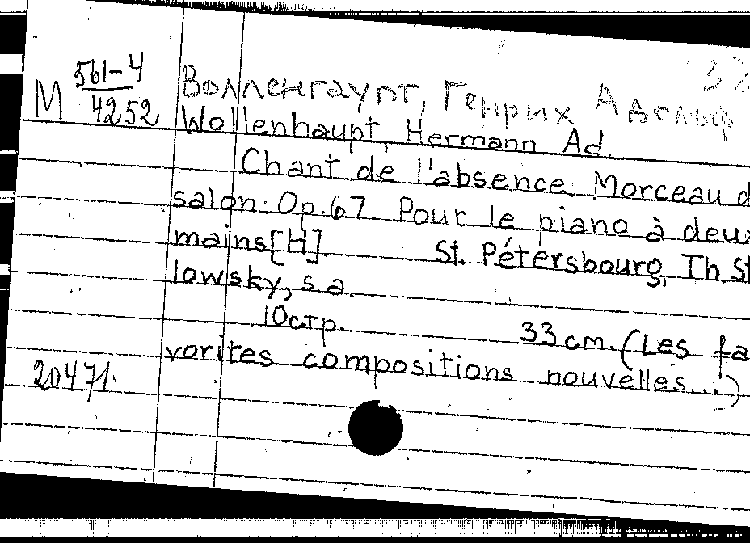 32
М 561-4
4252
Волленгаупт, Генрих Адельф
Wollenhaupt, Hermann Ad.
Chant de l'absence. Morceau d
salon. Op. 67. Pour le piano à deux
mains [Н]. St. Pétersbourg, Th. St
lowsky, s.a.
10 стр. 33 cm. (Les fa
vorites compositions nouvelles...)
20471.